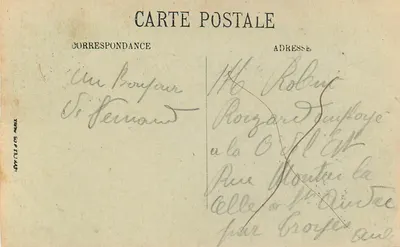 CARTE POSTALE
CORRESPONDANCE
ADRESSE
Un Bonjour
de Fernand
M Robin
Rougard employé
a la C de l'Est
Rue Moutier la
Celle a St André
par Troyes
Aube